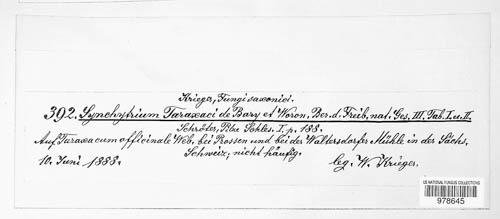 Krieger, Fungi saxonici.
392. Synchytrium Taraxaci de Bary et Woron, Ber. d. Freib. nat. Ges. III. Tab. I. u. II.
Schröter, Pilze Schles. I. p. 188.
Auf Taraxacum officinale Web. bei Prossen und bei der Waltersdorfer Mühle in der Sächs.
Schweiz, nicht häufig.
10. Juni 1888.
leg. W. Krieger.
US NATIONAL FUNGUS COLLECTIONS
978645